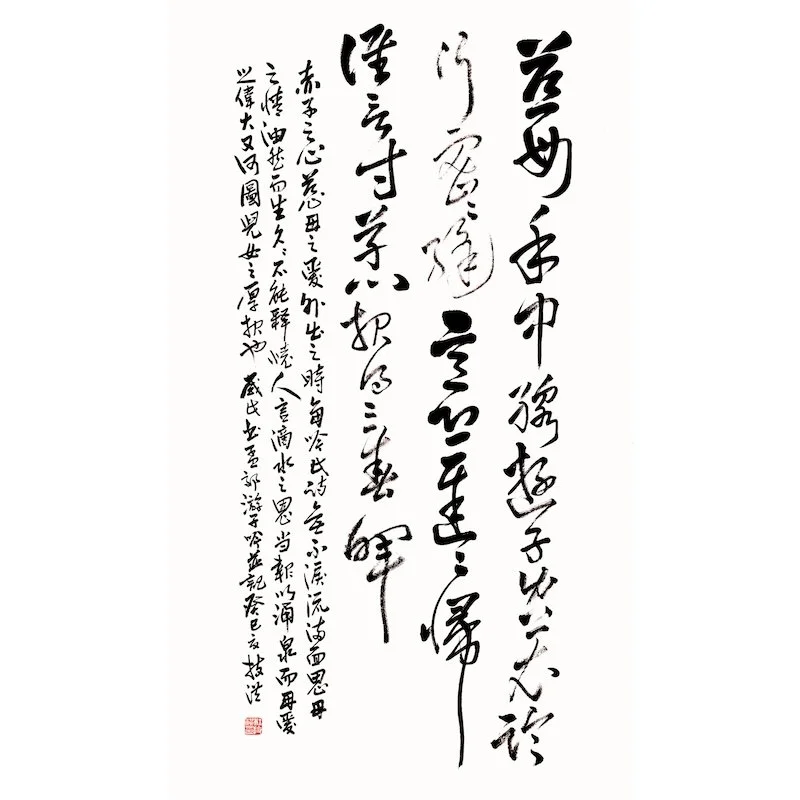 慈母手中線遊子身上衣臨
行密〻縫意恐遲〻歸
誰言寸草心報得三春暉
赤子之心慈母之愛外出之時每吟此詩無不淚流滿面思母
之情油然而生久〻不能釋懷人言滴水之恩当報以涌泉而母愛
之偉大又何圖兒女之厚報也感此書孟郊游子吟並記癸巳